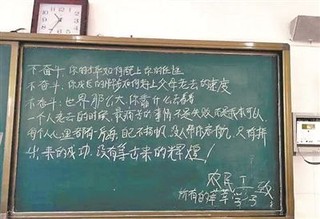 不奋斗,你的才华如何配上你的任性
不奋斗,你成长的脚步如何赶上父母老去的速度
不奋斗,世界那么大你靠什么去看看
一个人老去的时候,最痛苦的事情,不是失败,而是我本可以
每个人心里都有一片海,自己不扬帆,没人帮你启航,只有拼
出来的成功,没有等出来的辉煌!
农民工
所有的